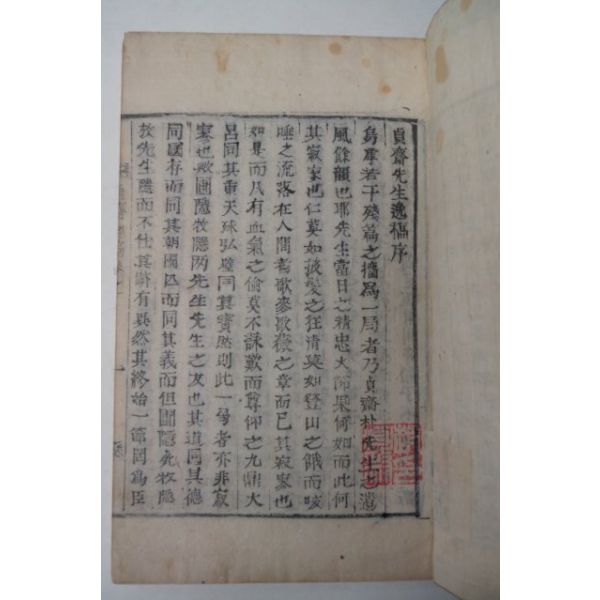 貞齋先生逸稿序
烏摩若干殘篇之擂爲一局者乃貞齋朴先生之遺
風餘韻也耶先生當日之精忠大節果何如而此何
其寂寥也仁莫如披髮之狂清莫如登山之餓而咳
唾之流落在人間者歌麥歌薇之章而已其寂寥也
如是而凡有血氣之倫莫不詠歎而尊仰之九鼎大
呂同其重天球弘璧同其寶然則此一兮者亦非寂
寥也歟圃隱牧隱兩先生先生之友也其道同其德
同國存而同其朝國亡而同其義而但圃隱死牧隱
放先生隱而不仕其跡有異然其終始一節罔爲臣